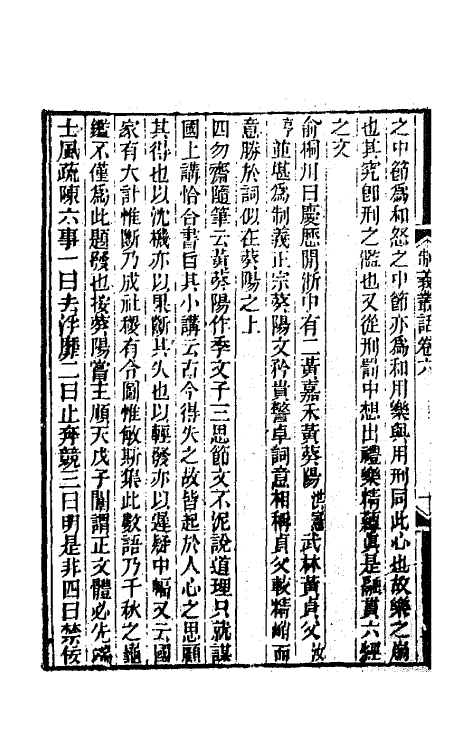 制義叢話卷六
之中節為和怒之中節亦為和用樂與用刑同此心也故樂之崩
也其究卽刑之濫也又從刑罰中想出禮樂精蘊眞是融貫六經
之文
俞桐川曰慶歷間浙中有二黃嘉禾黃葵陽洪憲武林黃貞父汝
亨並堪為制義正宗葵陽文矜貴警卓詞意相稱貞父較精峭而
意勝於詞似在葵陽之上
四勿齋隨筆云黃葵陽作季文子三思節文不泥說道理只就謀
國上講恰合書旨其小講云古今得失之故皆起於人心之思顧
其得也以沈機亦以果斷其失也以輕發亦以遲疑中幅又云國
家有大計惟斷乃成社稷有令圖惟敏斯集此數語乃千秋之龜
鑑不僅為此題發也按葵陽嘗主順天戊子闈謂正文體必先端
士風疏陳六事一曰去浮靡二曰止奔競三曰明是非四曰禁佞